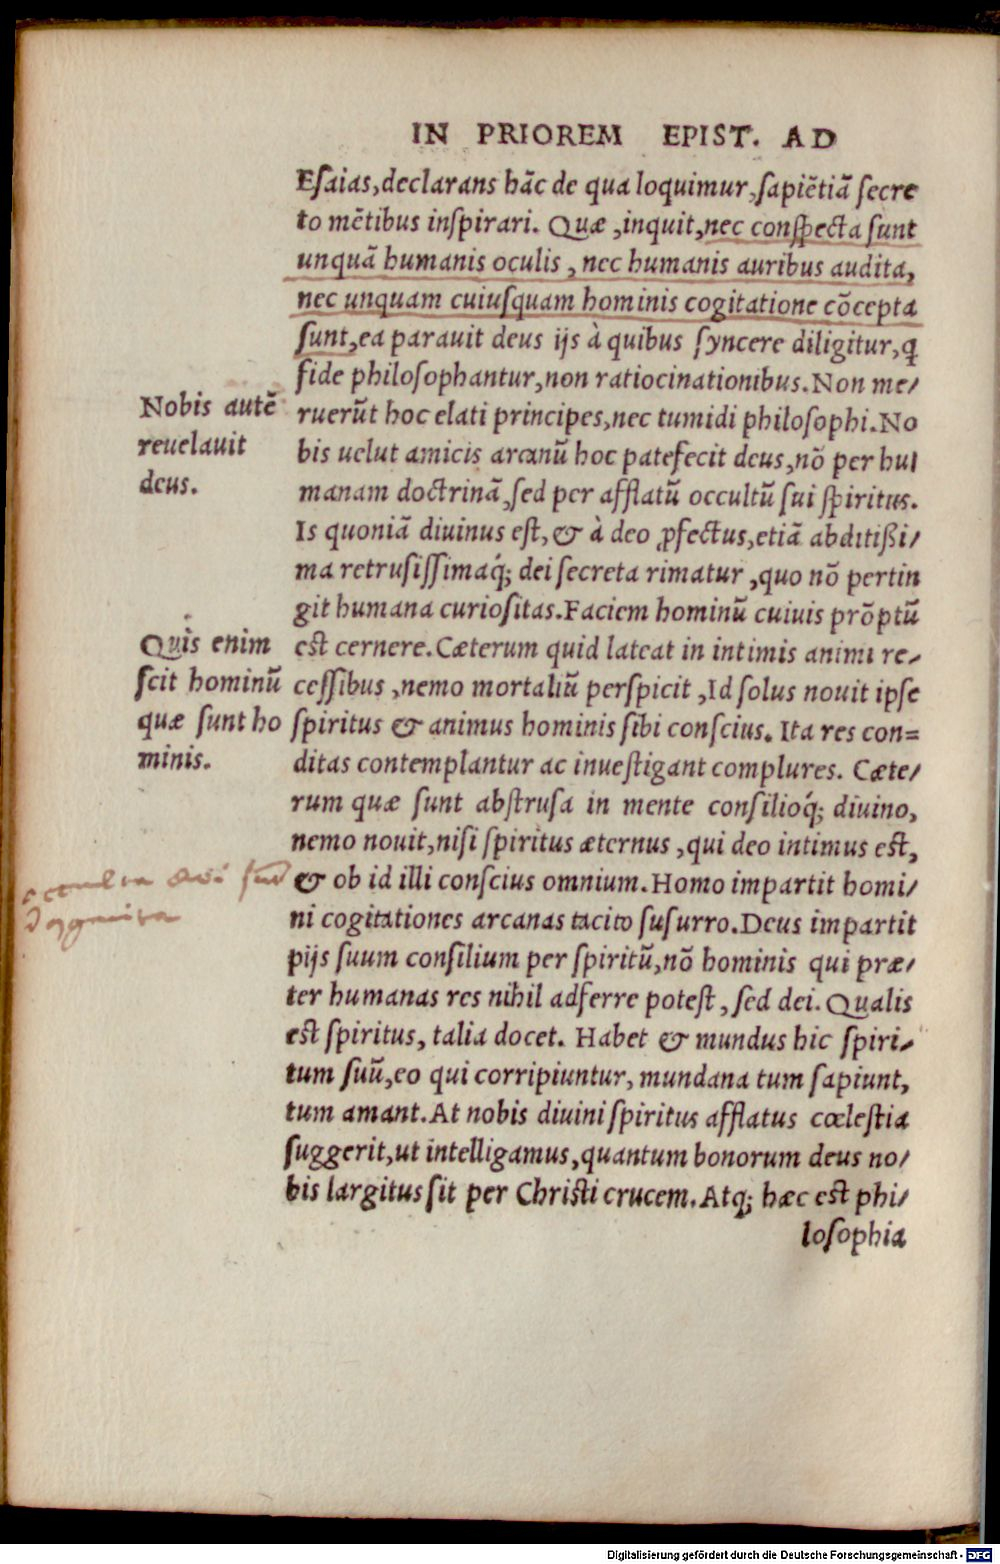 IN PRIOREM EPIST. AD
Esaias, declarans hāc de qua loquimur, sapiētiā secre
to mētibus inspirari. Quæ, inquit, nec conspecta sunt
unquā humanis oculis, nec humanis auribus audita,
nec unquam cuiusquam hominis cogitatione cōcepta
sunt, ea parauit deus ijs à quibus syncere diligitur, q̄
fide philosophantur, non ratiocinationibus. Non me/
ruerūt hoc elati principes, nec tumidi philosophi. No
bis uelut amicis arcanū hoc patefecit deus, nō per hu/
manam doctrinā, sed per afflatū occultū sui spiritus.
Is quoniā diuinus est, & à deo ꝓfectus, etiā abditißi/
ma retrusissimaq́; dei secreta rimatur, quo nō pertin
git humana curiositas. Faciem hominū cuiuis prōptū
est cernere. Cæterum quid lateat in intimis animi re/
cessibus, nemo mortaliū perspicit, Id solus nouit ipse
spiritus & animus hominis sibi conscius. Ita res con=
ditas contemplantur ac inuestigant complures. Cæte/
rum quæ sunt abstrusa in mente consilioq́; diuino,
nemo nouit, nisi spiritus æternus, qui deo intimus est,
& ob id illi conscius omnium. Homo impartit homi/
ni cogitationes arcanas tacito susurro. Deus impartit
pijs suum consilium per spiritū, nō hominis qui præ/
ter humanas res nihil adferre potest, sed dei. Qualis
est spiritus, talia docet. Habet & mundus hic spiri/
tum suū, eo qui corripiuntur, mundana tum sapiunt,
tum amant. At nobis diuini spiritus afflatus cœlestia
suggerit, ut intelligamus, quantum bonorum deus no/
bis largitus sit per Christi crucem. Atq; hæc est phi/
losophia
Nobis autē
reuelauit
deus.
Quis enim
scit hominū
quæ sunt ho
minis.
Digitalisierung gefördert durch die Deutsche Forschungsgemeinschaft - DFG